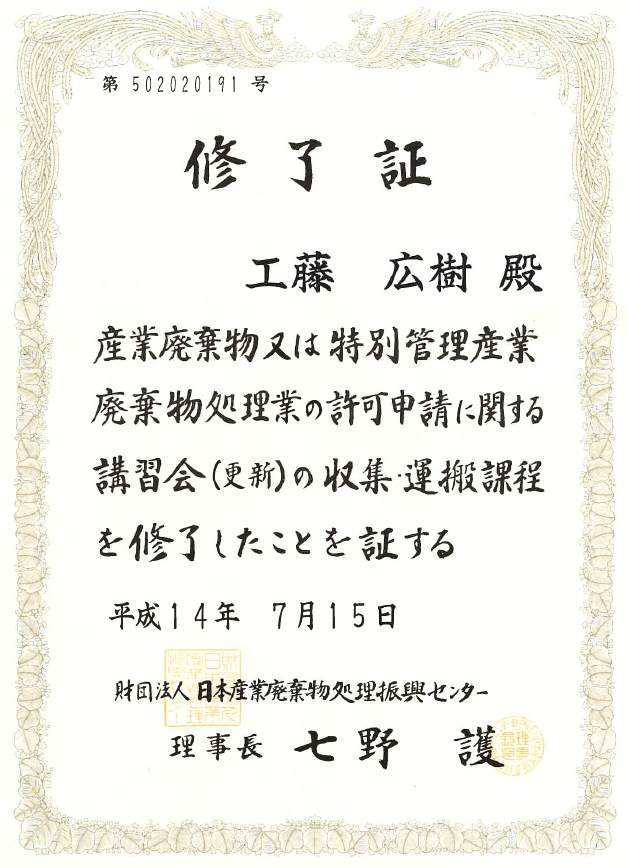 第 502020191 号
修了証
工藤 広樹 殿
産業廃棄物又は特別管理産業
廃棄物処理業の許可申請に関する
講習会(更新)の収集・運搬課程
を修了したことを証する
平成14年 7月15日
財団法人 日本産業廃棄物処理振興センター
理事長 七野 護